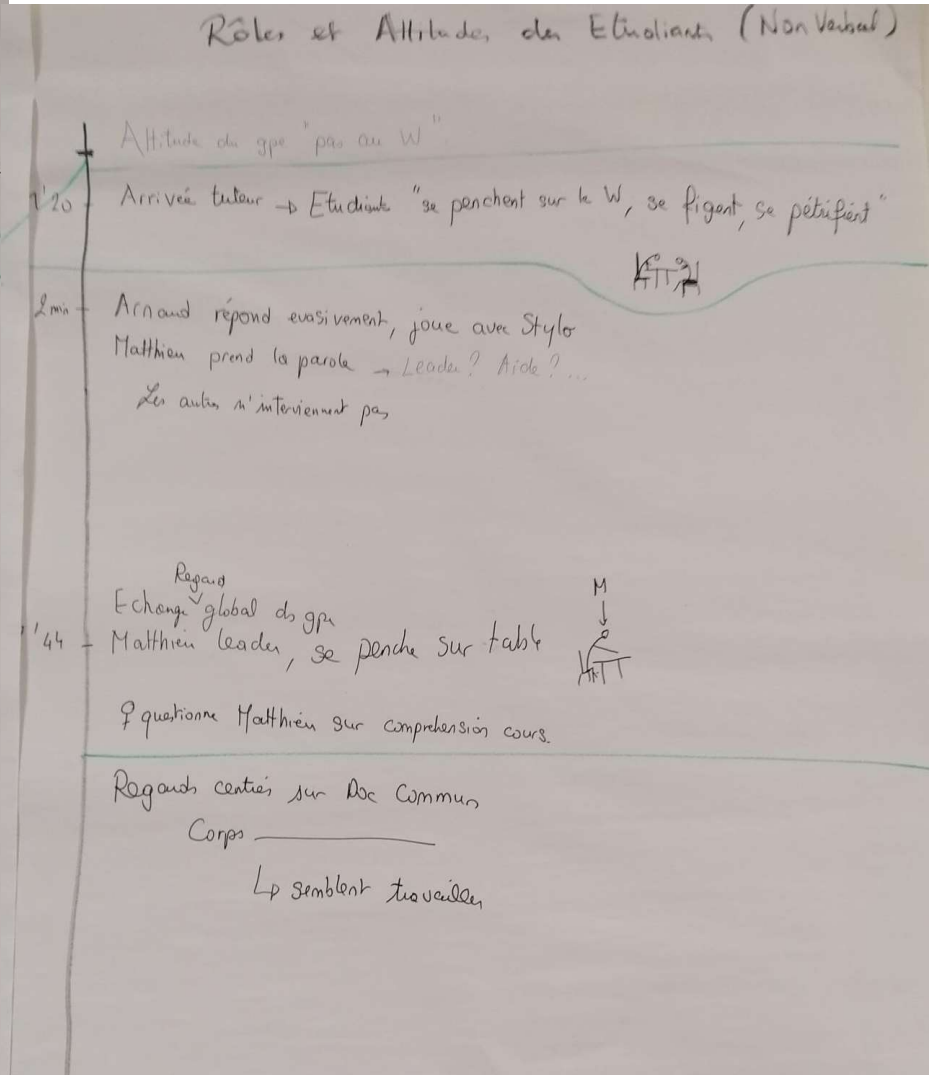 Rôles et Attitudes des Etudiants (Non Verbal)
Attitude du gpe "pas au W"
1'20 Arrivée tuteur → Etudiants "se penchent sur le W, se figent, se pétrifient"
2 min Arnaud répond evasivement, joue avec Stylo
Matthieu prend la parole → Leader? Aide?...
Les autres n'interviennent pas
Regard
Echange global ds gpe
'44 Matthieu leader, se penche sur table
M
♀ questionne Matthieu sur comprehension cours.
Regards centrés sur Doc Commun
Corps
↳ semblent travailler